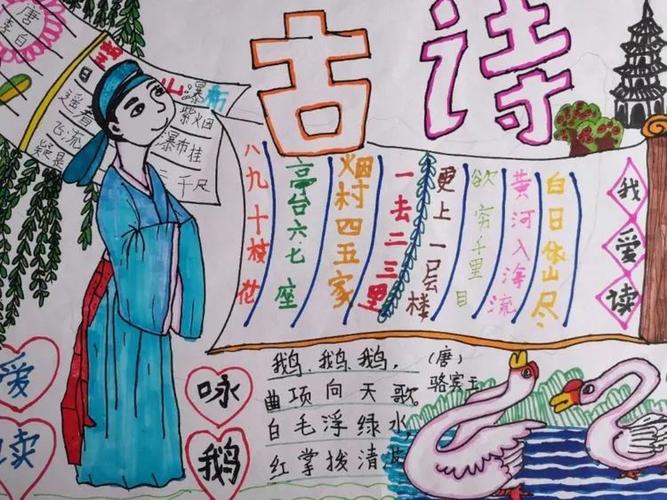 古诗
唐
李白
日
遥看
飞流
疑是
瀑布
紫烟
瀑布挂
千尺
我爱读
白日依山尽
黄河入海流
欲穷千里目
更上一层楼
一去二三里
烟村四五家
亭台六七座
八九十枝花
爱
读
咏
鹅
鹅、鹅、鹅,
(唐)
骆宾王
曲项向天歌。
白毛浮绿水,
红掌拨清波